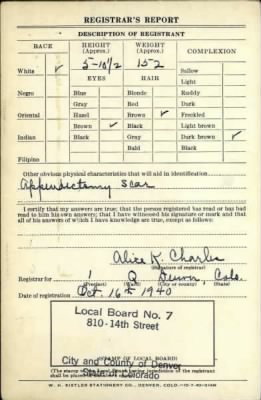 REGISTRAR'S REPORT
DESCRIPTION OF REGISTRANT
RACE HEIGHT (Approx.) WEIGHT (Approx.) COMPLEXION
5-10½ 152
White ✓ Sallow
EYES HAIR Light
Negro Blue Blonde Ruddy
Gray Red Dark
Oriental Hazel Brown ✓ Freckled
Brown ✓ Black Light brown
Indian Black Gray Dark brown ✓
Bald Black
Filipino
Other obvious physical characteristics that will aid in identification
Appendectomy Scar
I certify that my answers are true; that the person registered has read or has had
read to him his own answers; that I have witnessed his signature or mark and that
all of his answers of which I have knowledge are true, except as follows:
Alice K. Charles
(Signature of registrar)
Registrar for 1 Q Denver, Colo.
(Precinct) (Ward)
Date of registration Oct. 16th 1940
Local Board No. 7
810-14th Street
City and County of Denver
(STAMP OF LOCAL BOARD)
State of Colorado
W. H. KISTLER STATIONERY CO., DENVER, COLO.